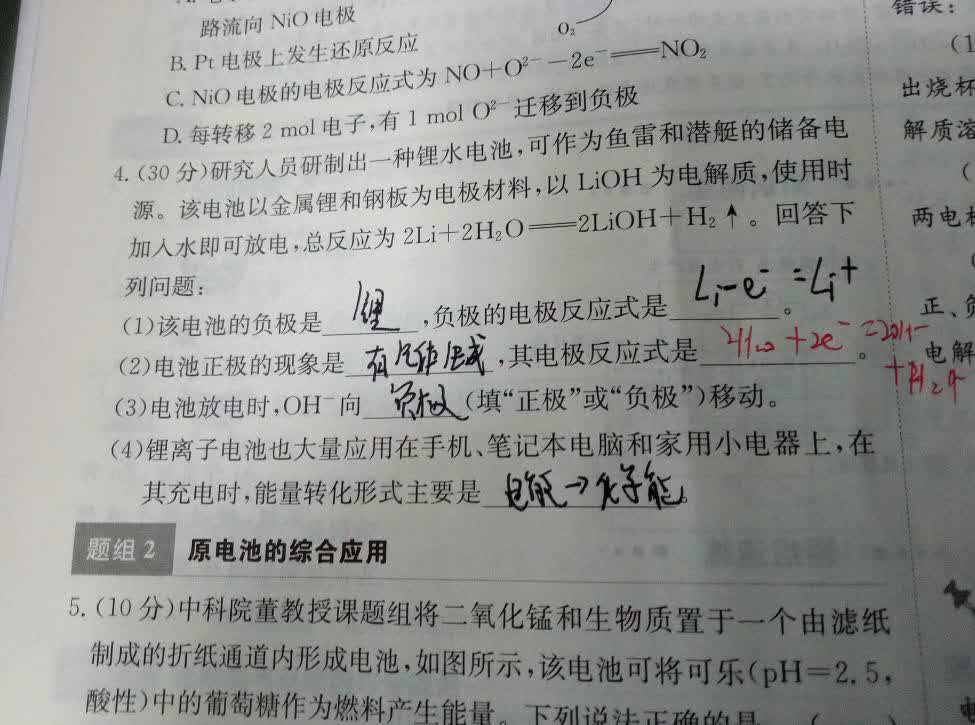 路流向 NiO 电极
O₂
B. Pt 电极上发生还原反应
C. NiO 电极的电极反应式为 NO+O²⁻−2e⁻══NO₂
D. 每转移 2 mol 电子,有 1 mol O²⁻ 迁移到负极
4. (30 分)研究人员研制出一种锂水电池,可作为鱼雷和潜艇的储备电
源。该电池以金属锂和钢板为电极材料,以 LiOH 为电解质,使用时
加入水即可放电,总反应为 2Li+2H₂O══2LiOH+H₂↑。回答下
列问题:
(1)该电池的负极是 锂 ,负极的电极反应式是 Li−e⁻=Li⁺ 。
(2)电池正极的现象是 有气体生成 ,其电极反应式是 2H₂O+2e⁻=2OH⁻+H₂↑ 。
(3)电池放电时,OH⁻向 负极 (填“正极”或“负极”)移动。
(4)锂离子电池也大量应用在手机、笔记本电脑和家用小电器上,在
其充电时,能量转化形式主要是 电能→化学能。
题组 2 原电池的综合应用
5. (10 分)中科院董教授课题组将二氧化锰和生物质置于一个由滤纸
制成的折纸通道内形成电池,如图所示,该电池可将可乐(pH=2.5,
酸性)中的葡萄糖作为燃料产生能量。下列说法正确的是 (
错误:
(1
出烧杯
解质溶
(
两电极
正、负
电解